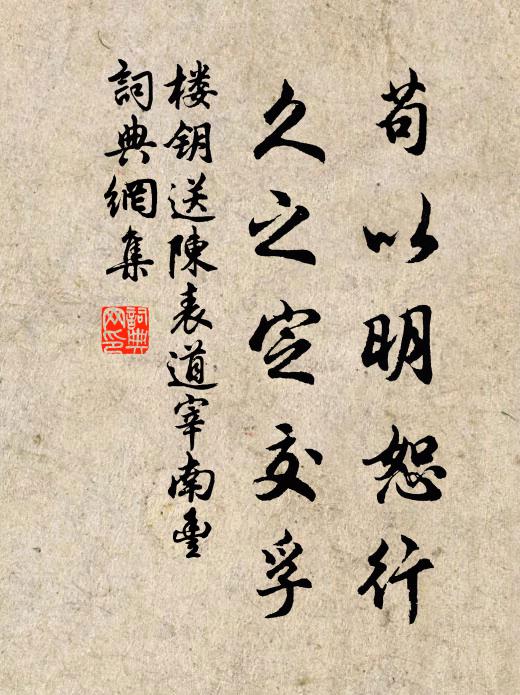 苟以明恕行
久之定交孚
楼钥送陳表道宰南豐
詞典網集
詞典网印